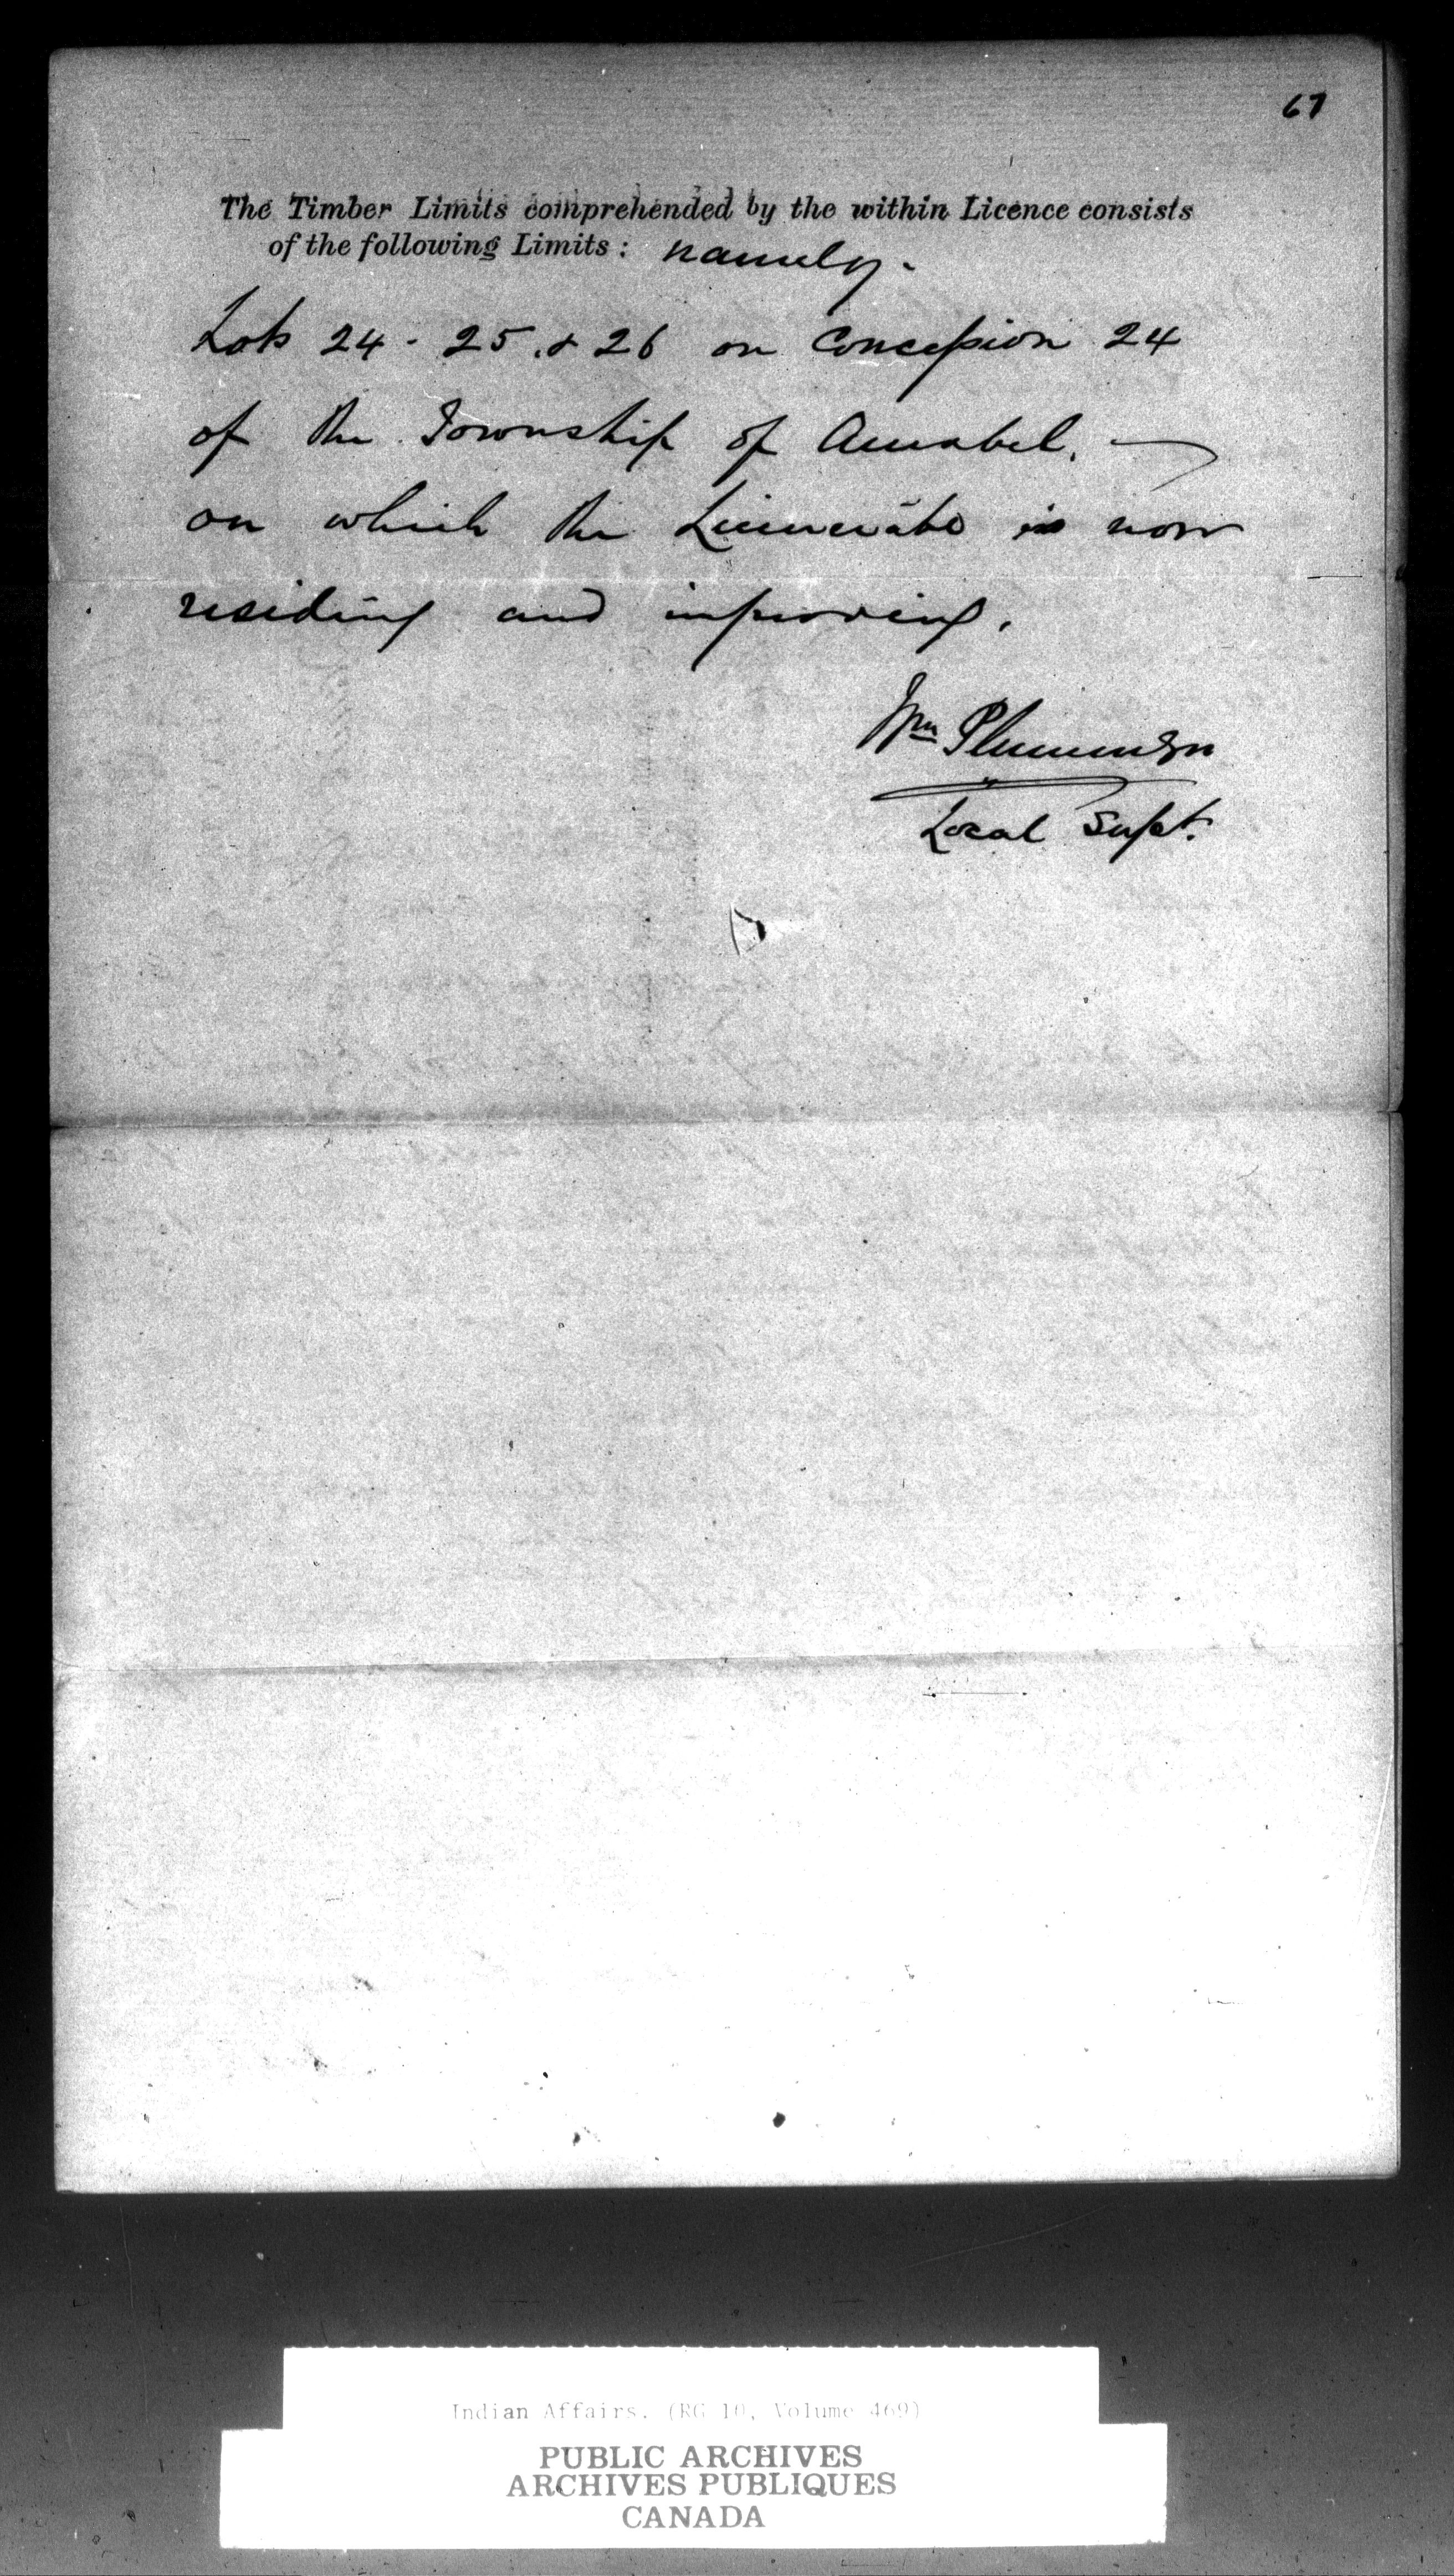 67
The Timber Limits comprehended by the within Licence consists
of the following Limits: namely -
Lots 24 - 25 & 26 on Concession 24
of the Township of Amabel.
on which the Licenciate is now
residing and improving.
Wm Plummer
Local Supt.
Indian Affairs. (RG 10, Volume 469)
PUBLIC ARCHIVES
ARCHIVES PUBLIQUES
CANADA